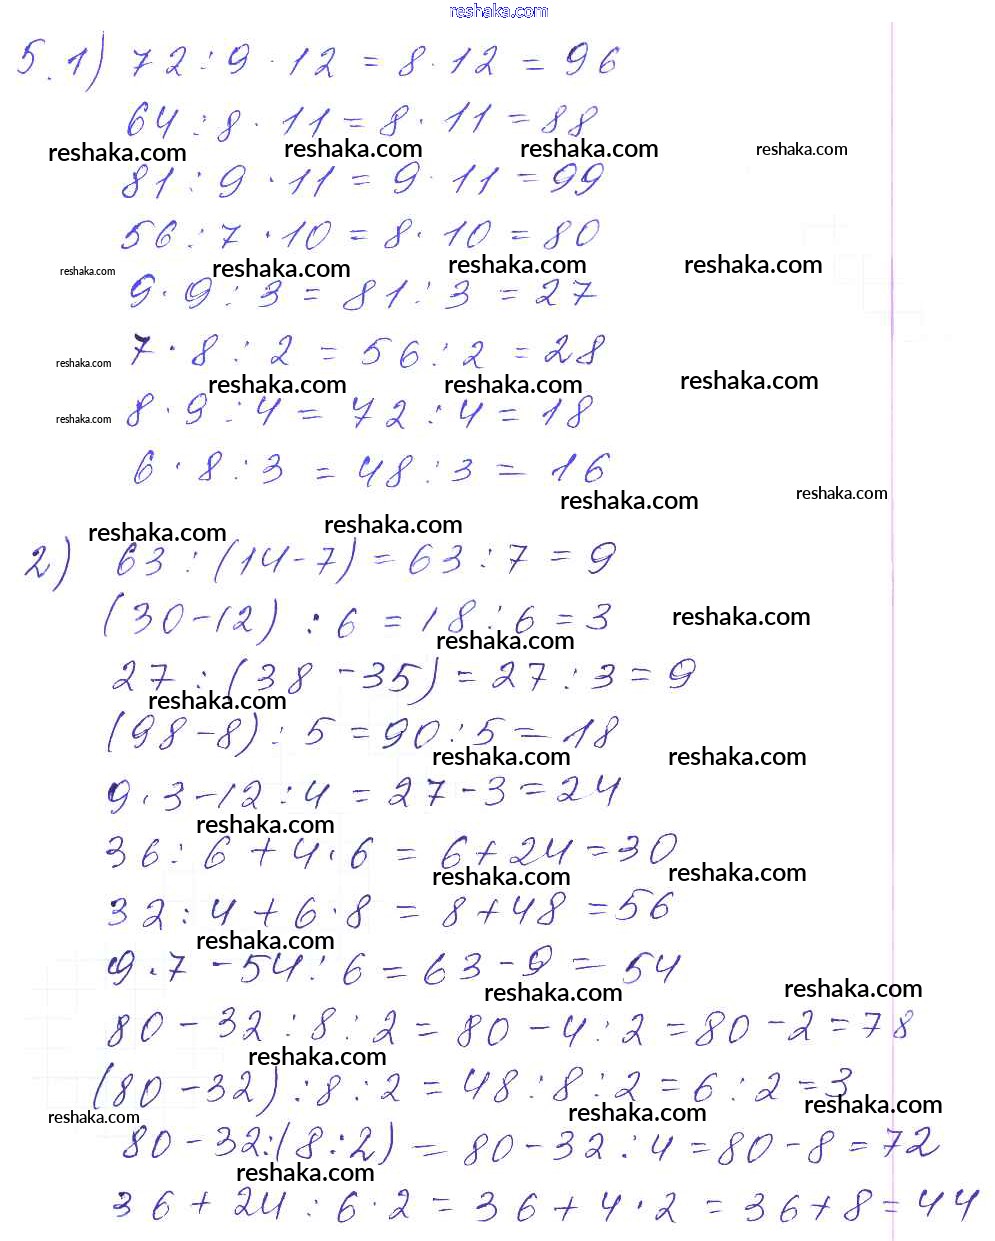 reshaka.com
5.1) 72 : 9 · 12 = 8 · 12 = 96
64 : 8 · 11 = 8 · 11 = 88
reshaka.com reshaka.com reshaka.com reshaka.com
81 : 9 · 11 = 9 · 11 = 99
56 : 7 · 10 = 8 · 10 = 80
reshaka.com reshaka.com reshaka.com reshaka.com
9 · 9 : 3 = 81 : 3 = 27
7 · 8 : 2 = 56 : 2 = 28
reshaka.com reshaka.com reshaka.com reshaka.com
8 · 9 : 4 = 72 : 4 = 18
reshaka.com
6 · 8 : 3 = 48 : 3 = 16
reshaka.com reshaka.com
reshaka.com reshaka.com
2) 63 : (14 - 7) = 63 : 7 = 9
(30 - 12) : 6 = 18 : 6 = 3
reshaka.com reshaka.com
27 : (38 - 35) = 27 : 3 = 9
reshaka.com
(98 - 8) : 5 = 90 : 5 = 18
reshaka.com reshaka.com
9 · 3 - 12 : 4 = 27 - 3 = 24
reshaka.com
36 : 6 + 4 · 6 = 6 + 24 = 30
reshaka.com reshaka.com
32 : 4 + 6 · 8 = 8 + 48 = 56
reshaka.com
9 · 7 - 54 : 6 = 63 - 9 = 54
reshaka.com reshaka.com
80 - 32 : 8 : 2 = 80 - 4 : 2 = 80 - 2 = 78
reshaka.com
(80 - 32) : 8 : 2 = 48 : 8 : 2 = 6 : 2 = 3
reshaka.com reshaka.com reshaka.com
80 - 32 : (8 : 2) = 80 - 32 : 4 = 80 - 8 = 72
reshaka.com
36 + 24 : 6 · 2 = 36 + 4 · 2 = 36 + 8 = 44